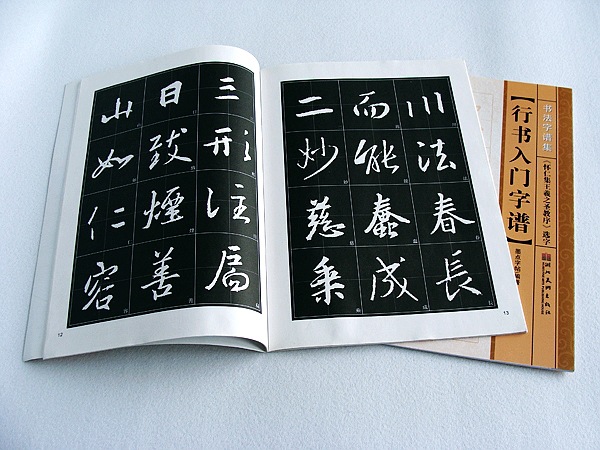 川法春長
而能蠢成
二妙慈乘
13
三形注
日致煙善
山如仁容
12
书法字谱集
【行书入门字谱】
《怀仁集王羲之圣教序》选字
湖北美术出版社